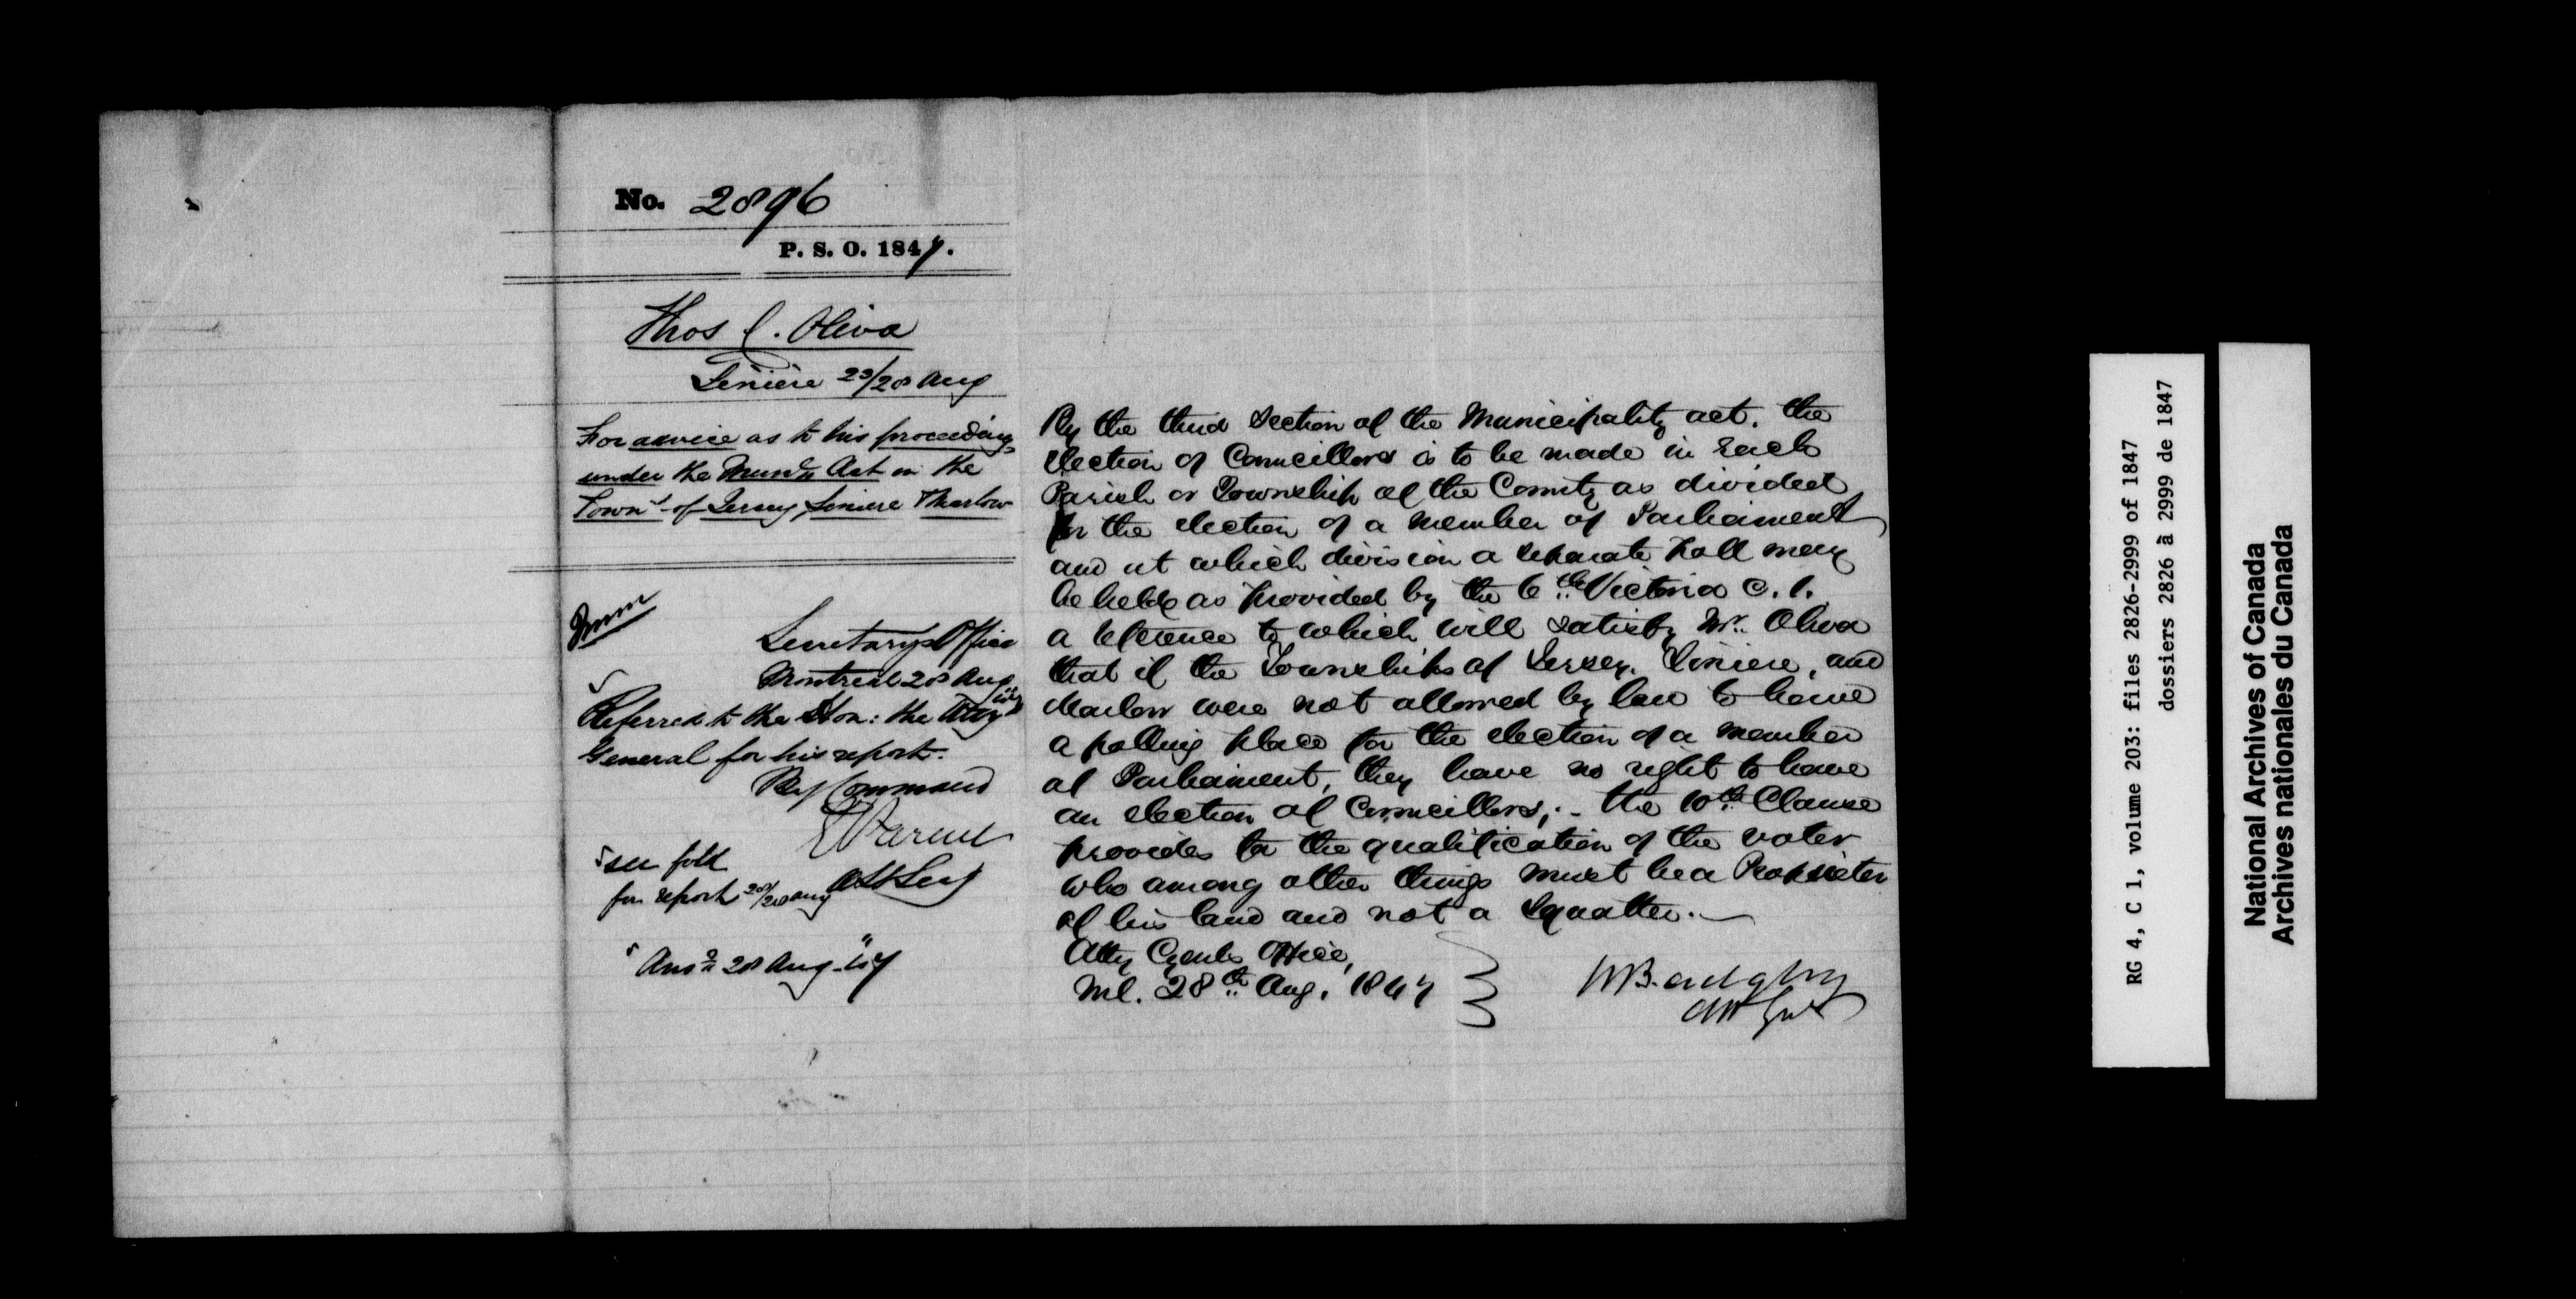 No. 2896
P. S. O. 1847.
Thos C. Oliva
Liniere 23/28 Aug
For advice as to his proceedings
under the Munic. Act in the
Towns. of Jersey, Liniere & Marlow
Secretary's Office
Montreal 28 Aug
Referred to the Hon: the Atty
General for his report.
By Command
E Parent
Ast Secy
see fold
for report 28/28 Aug
Ansd 28 Aug. 47
By the third Section of the Municipality act, the
election of Councillors is to be made in Each
Parish or Township of the County as divided
for the election of a member of Parliament
and at which division a separate Poll may
be held as provided by the 6th Victoria C. 1.
a reference to which will satisfy Mr. Oliva
that if the Townships of Jersey, Liniere, and
Marlow were not allowed by law to have
a polling place for the election of a member
of Parliament, they have no right to have
an election of Councillors; - the 10th Clause
provides for the qualification of the voter
who among other things must be a Proprietor
of his land and not a Squatter. —
Atty Genls Office,
Ml. 28th Aug. 1847
W Badgley
Att Genl
RG 4, C 1, volume 203: files 2826-2999 of 1847
dossiers 2826 à 2999 de 1847
National Archives of Canada
Archives nationales du Canada